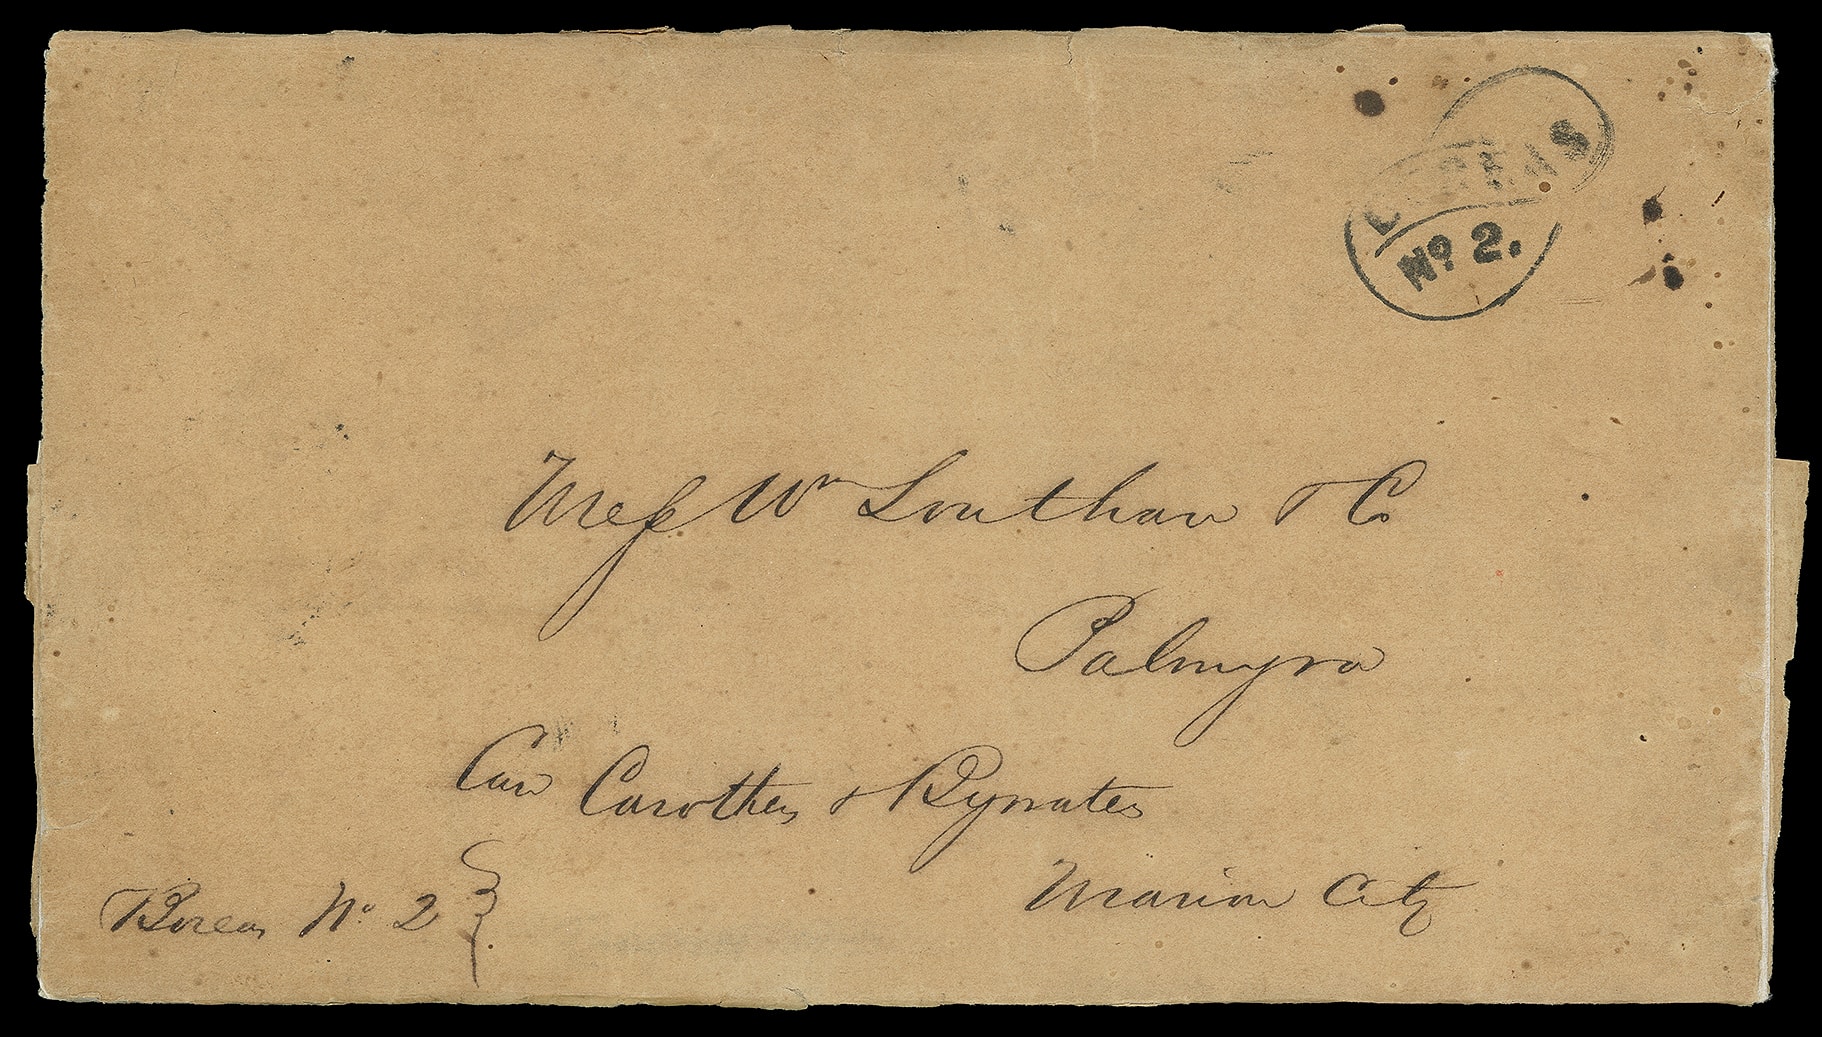 BOREAS
No. 2.
Mess Wm Louthan & Co
Palmyra
Care Carothers & Rynates
Marion City
Boreas No. 2